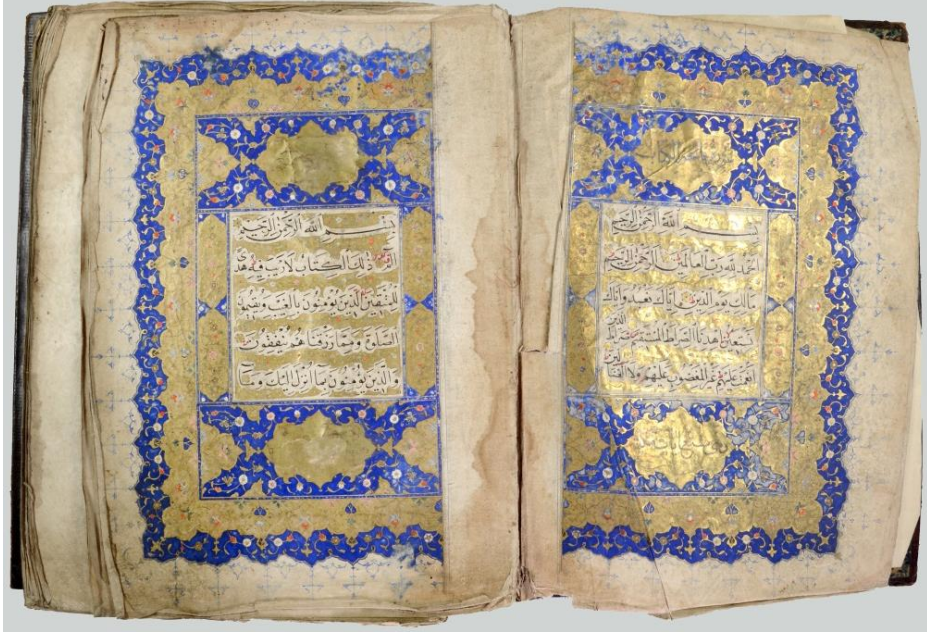 بسم الله الرحمن الرحيم
الحمد لله رب العالمين الرحمن الرحيم
مالك يوم الدين اياك نعبد واياك
نستعين اهدنا الصراط المستقيم صراط الذين
انعمت عليهم غير المغضوب عليهم ولا الضالين
بسم الله الرحمن الرحيم
الم ذلك الكتاب لا ريب فيه هدى
للمتقين الذين يؤمنون بالغيب ويقيمون
الصلوة ومما رزقناهم ينفقون
والذين يؤمنون بما انزل اليك وما